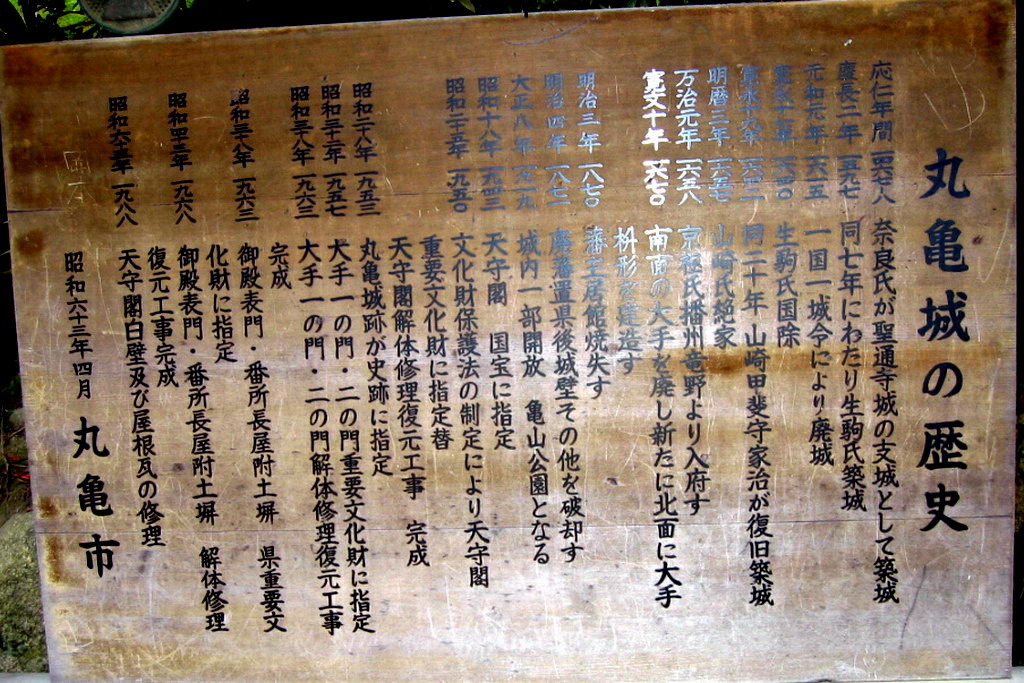 丸亀城の歴史
応仁年間 奈良氏が聖通寺城の支城として築城
慶長二年 一五九七 同七年にわたり生駒氏築城
元和元年 一六一五 一国一城令により廃城
寛永十七年 一六四〇 生駒氏国除
寛永十八年 一六四一 同二十年 山崎甲斐守家治が復旧築城
明暦三年 一六五七 山崎氏絶家
万治元年 一六五八 京極氏播州竜野より入府す
寛文十年 一六七〇 南面の大手を廃し新たに北面に大手
枡形を建造す
明治三年 一八七〇 藩主居館焼失す
明治四年 一八七一 廃藩置県後城壁その他を破却す
大正八年 一九一九 城内一部開放 亀山公園となる
昭和十八年 一九四三 天守閣 国宝に指定
昭和二十五年 一九五〇 文化財保護法の制定により天守閣
重要文化財に指定替
天守閣解体修理復元工事 完成
昭和二十八年 一九五三 丸亀城跡が史跡に指定
昭和三十二年 一九五七 大手一の門・二の門重要文化財に指定
昭和三十八年 一九六三 大手一の門・二の門解体修理復元工事
完成
昭和三十八年 一九六三 御殿表門・番所長屋附土塀 県重要文
化財に指定
昭和四十三年 一九六八 御殿表門・番所長屋附土塀 解体修理
復元工事完成
昭和六十三年 一九八八 天守閣白壁及び屋根瓦の修理
昭和六十三年四月 丸亀市